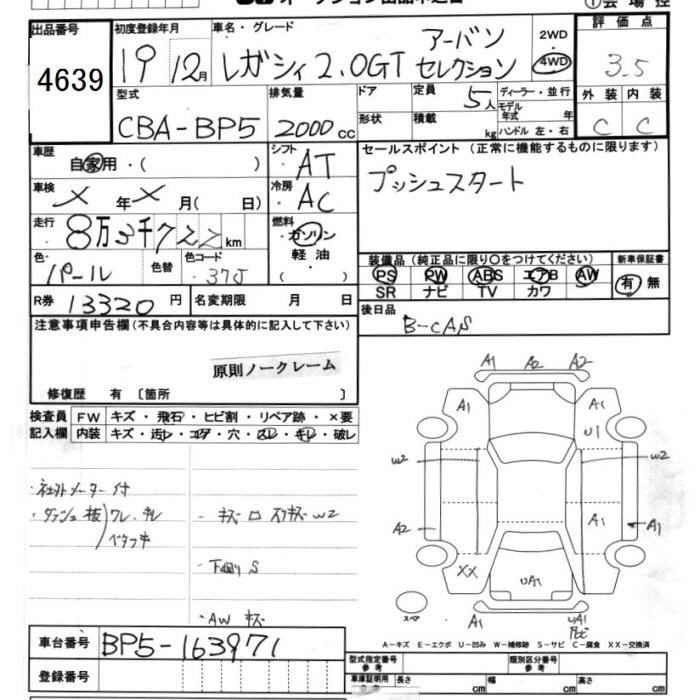 ①会場控
出品番号 初度登録年月 車名・グレード 評価点
4639 19年 12月 レガシィ2.0GT アーバンセレクション 2WD 4WD 3.5
型式 排気量 ドア 定員 5人 ディーラー・並行 外装 内装
CBA-BP5 2000cc 形状 積載 kg モデル年式 年 ハンドル 左・右 C C
車歴 自家用・( ) シフト AT セールスポイント (正常に機能するものに限ります)
車検 X 年 X 月( 日) 冷房 AC プッシュスタート
走行 8万3千722km 燃料 ・ガソリン ・軽油 ・( )
色 パール 色替 色コード 37J 装備品 (純正品に限り○をつけてください) 新車保証書
PS PW ABS エアB AW 有 無
SR ナビ TV カワ
R券 13320円 名変期限 月 日 後日品
B-CAS
注意事項申告欄 (不具合内容等は具体的に記入して下さい)
原則ノークレーム
修復歴 有 〔箇所 〕
検査員 FW キズ・飛石・ヒビ割・リペア跡・×要
記入欄 内装 キズ・汚レ・コゲ・穴・スレ・キレ・破レ
A1 A2 A2
A1 A1
U1
W2 W2
・社外メーター付
・ダッシュ板 ワレ、キレ ベタツキ
・キズ ロ スリキズ W2
A2 A1 A1
・下廻り S
XX UA1
・AW キズ
スペア A1 UA1
A-キズ E-エクボ U-凹み W-補修跡 S-サビ C-腐食 XX-交換済
車台番号 BP5-163971
登録番号
型式指定番号 参考 類別区分番号 参考
車庫証明用 参考 長さ cm 幅 cm 高さ cm